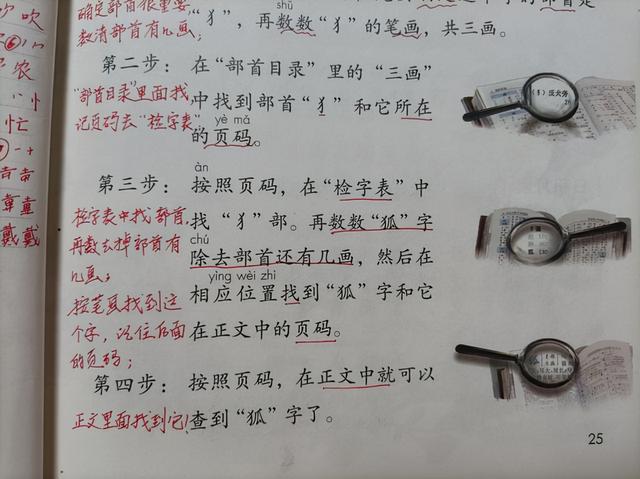 吹
确定部首很重要
数清部首有几画；
shǔ
“犭”，再数数“犭”的笔画，共三画。
第二步：在“部首目录”里的“三画”
“部首目录”里面找
中找到部首“犭”和它所在
记页码去“检字表”
yè mǎ
的页码。
农
忙
àn
第三步：按照页码，在“检字表”中
检字表中找部首
找“犭”部。再数数“狐”字
再数去掉部首有
几画；
chú
除去部首还有几画，然后在
yìng wèi zhi
按笔画找到这
相应位置找到“狐”字和它
个字，记住后面
在正文中的页码。
的页码；
戴戴
第四步：按照页码，在正文中就可以
正文里面找到它！
查到“狐”字了。
25